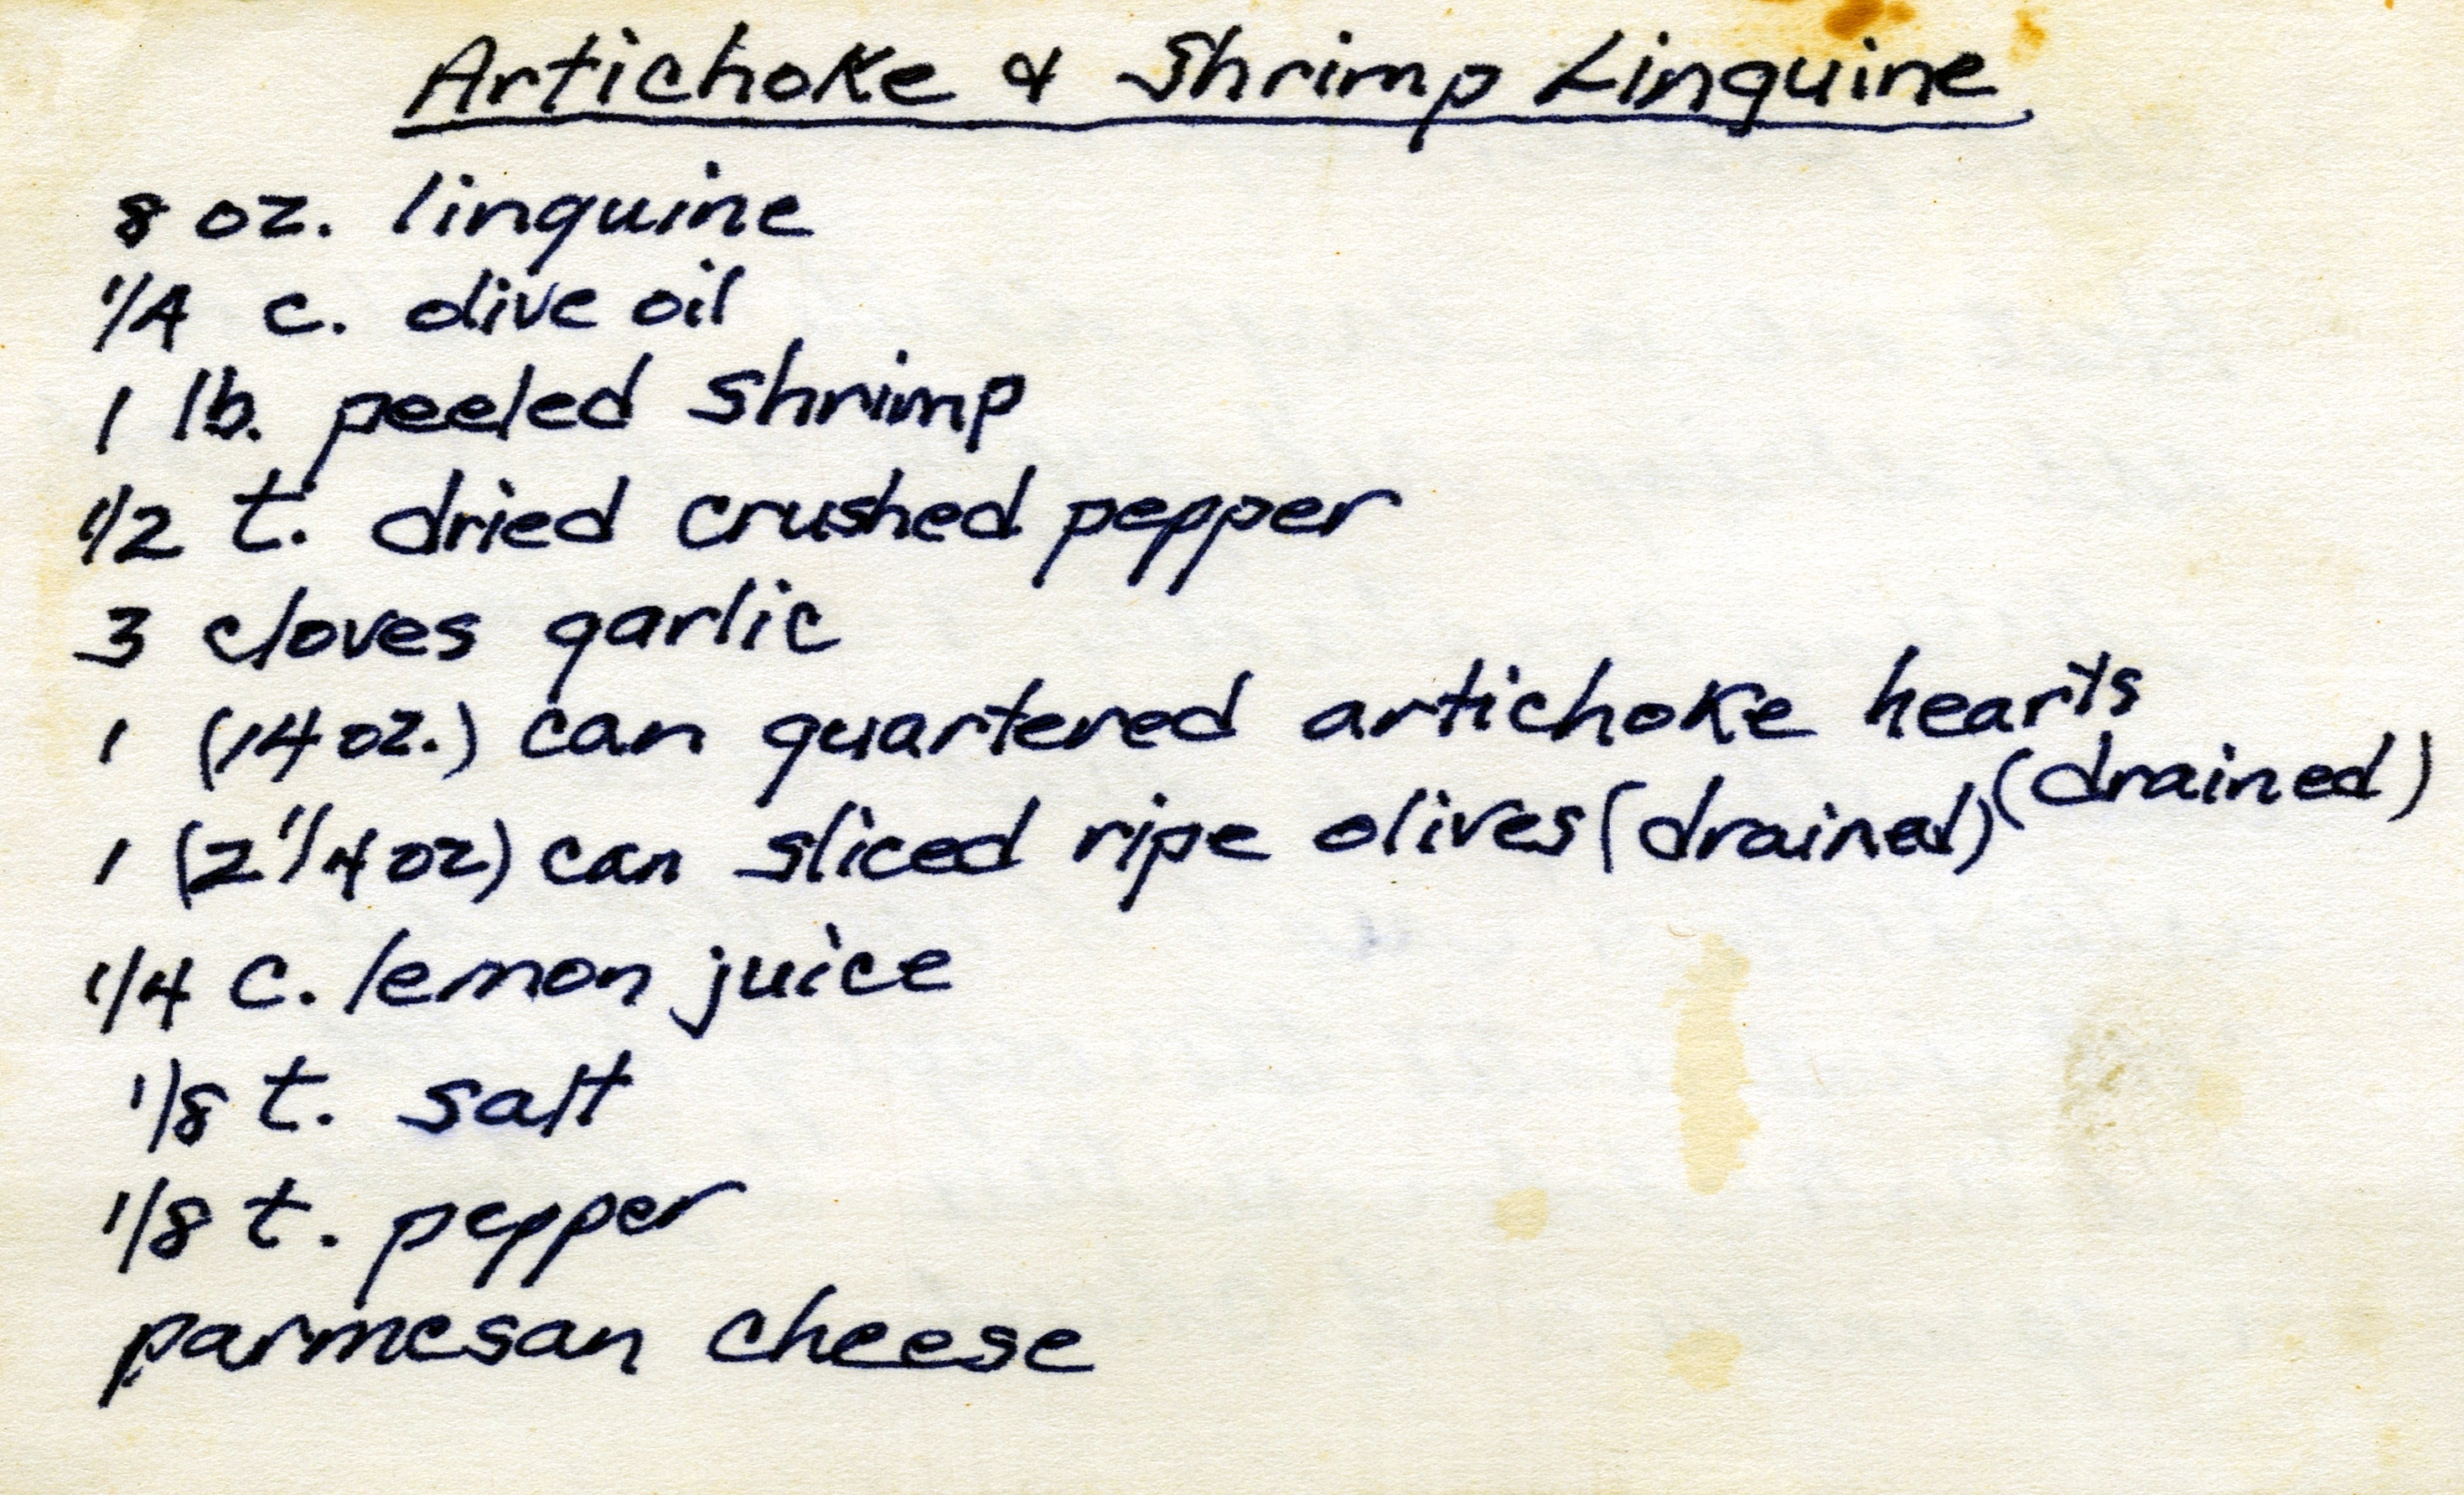 Artichoke & Shrimp Linguine
8 oz. linguine
1/4 c. olive oil
1 lb. peeled shrimp
1/2 t. dried crushed pepper
3 cloves garlic
1 (14 oz.) can quartered artichoke hearts (drained)
1 (2 1/4 oz) can sliced ripe olives (drained)
1/4 c. lemon juice
1/8 t. salt
1/8 t. pepper
parmesan cheese